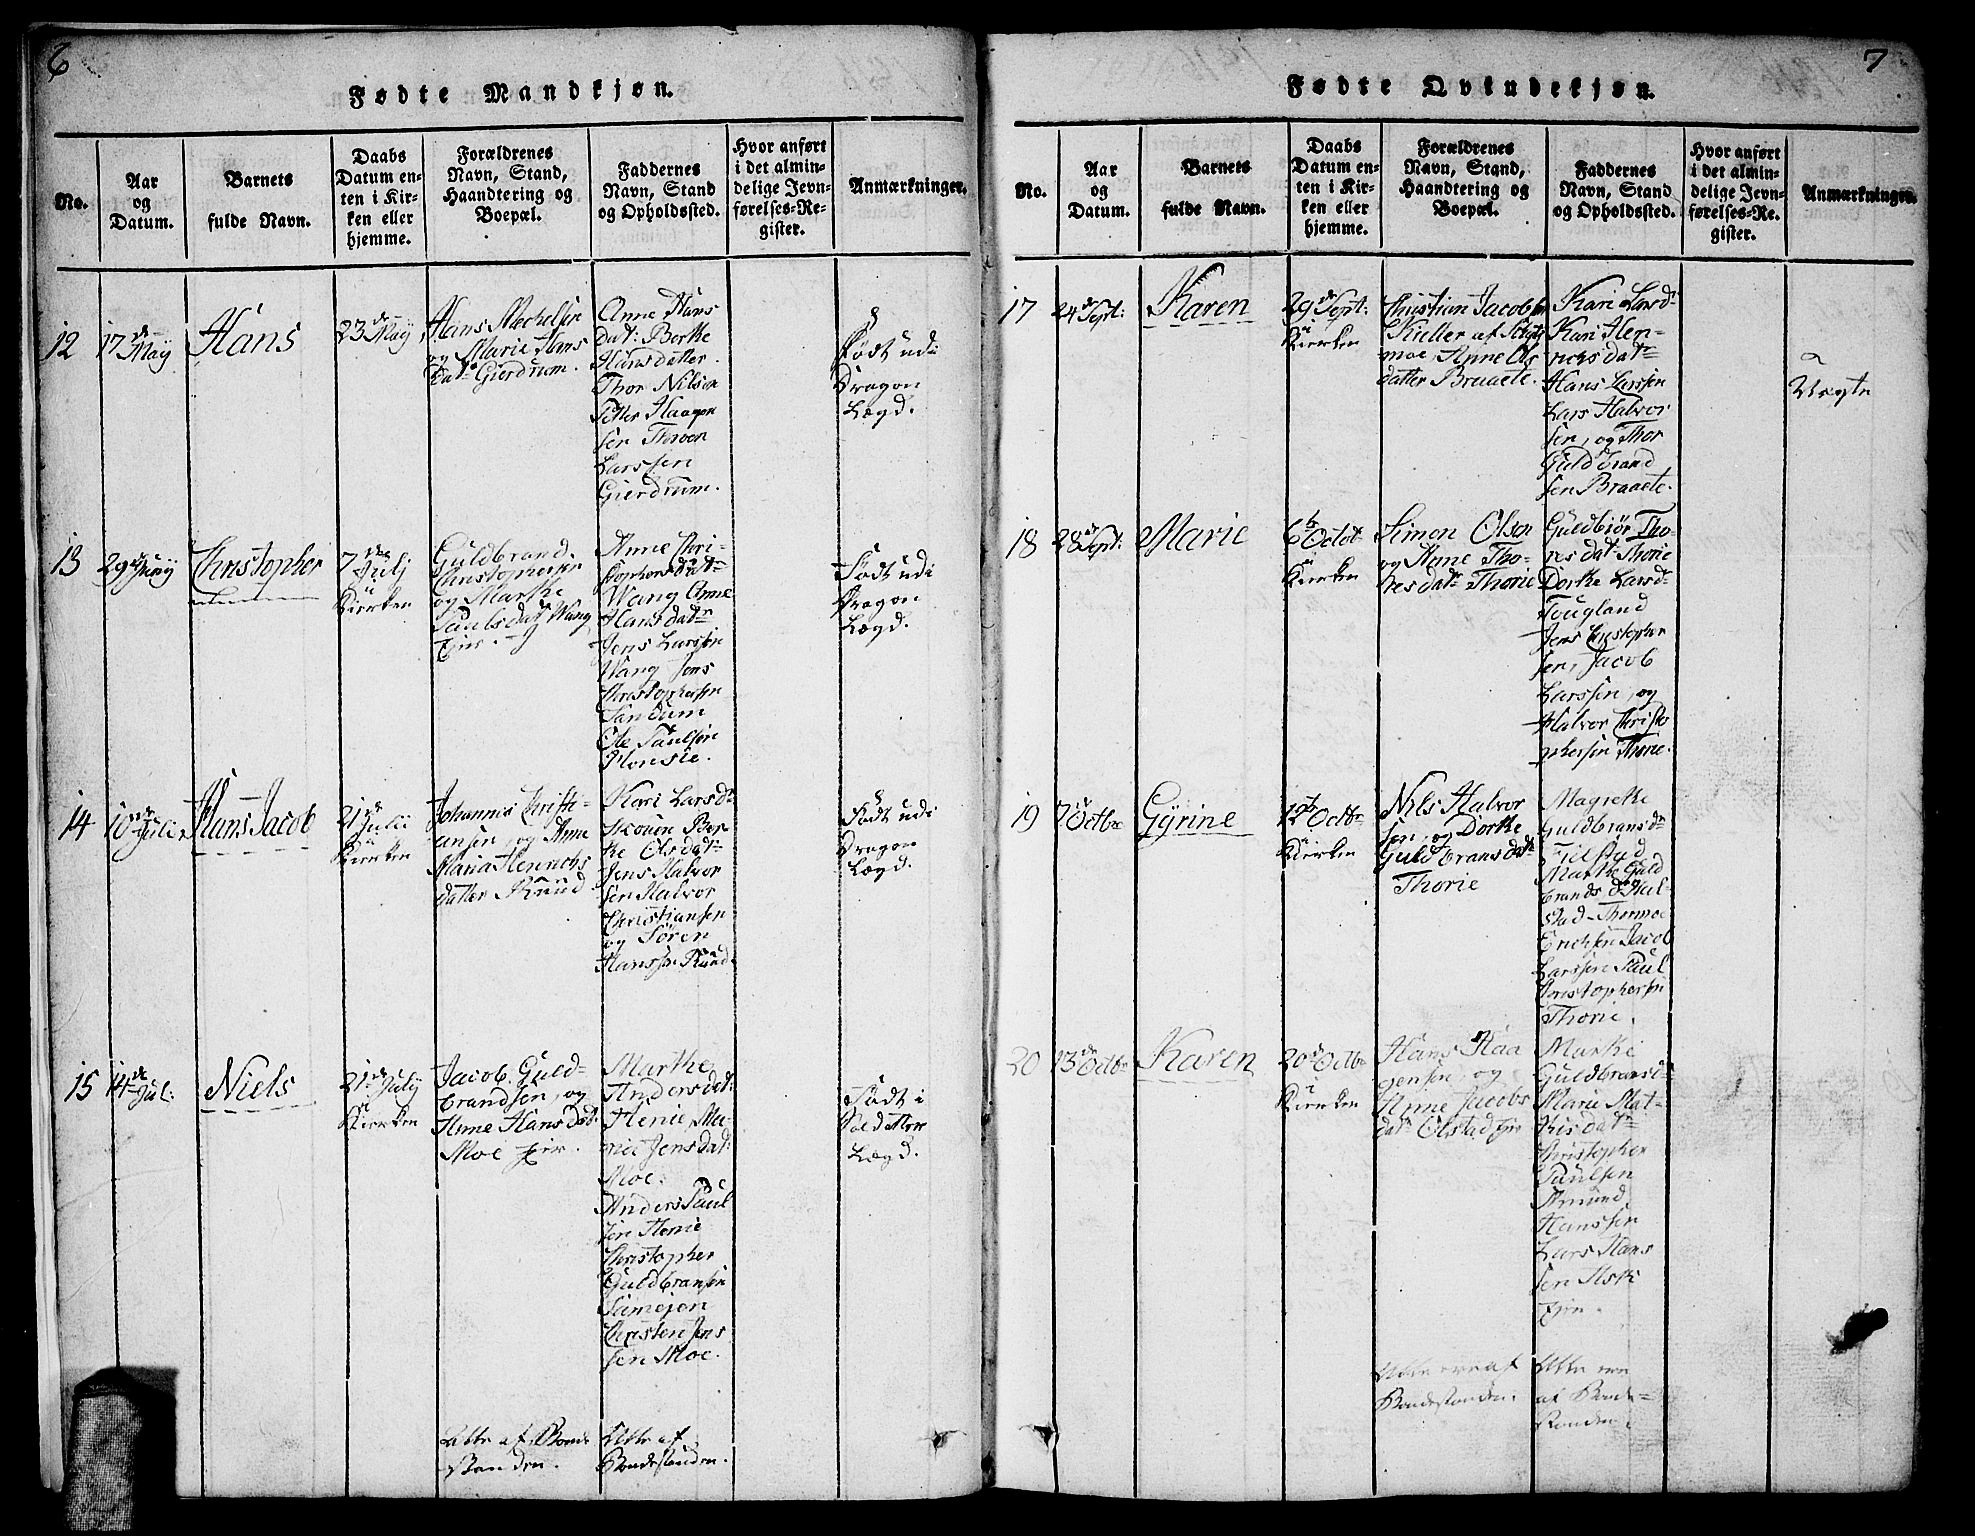 6
Fødte Mandkjøn.
No.
Aar
og
Datum.
Barnets
fulde Navn.
Daabs
Datum en-
ten i Kir-
ken eller
hjemme.
Forældrenes
Navn, Stand,
Haandtering og
Boepæl.
Faddernes
Navn, Stand
og Opholdssted.
Hvor anført
i det almin-
delige Jevn-
førelses-Re-
gister.
Anmærkninger.
12
17de
May
Hans
23de May
Hans Mechelsen
og Marie Hans
Datr Gierdrum.
Anne Hans
dat: Borke
Hansdatter.
Thor Nilsen
Petter Haagen
sen Thoren
Larssen
Gierdrum.
Født udi
Dragon
Lægd.
13
29de Juny
Christopher
7de
July
i
Kierken
Guldbrand
Christophersen
og Marthe
Paulsdatr Wang
Eier.
Anne Chri-
stophersdatr
Wang Anne
Hansdatr
Jens Larssen
Wang Jens
Christophersen
Sandum
Ole Paulsen
Honsie.
Født udi
Dragon
Lægd.
14
10de Juli
Hans Jacob
21de
Julii
i
Kierken
Johannis Christi-
ansen, og Anne
Maria Henrichs
datter Ruud
Kari Larsdr
Skouen Bor-
the Olsdatr
Jens Halvor
sen Halvor
Christiansen
og Søren
Hanssen Ruud.
Født udi
Dragon
Lægd.
15
14de Jul:
Niels
21de July
i
Kierken
Jacob Guld-
brandsen, og
Anne Hansdat:
Moe Eier.
Marthe
Andersdat:
Henie, Ma-
rie Jensdat:
Moe.
Anders Paul
sen Henie
Christopher
Guldbransen
Christen Jens
sen Moe.
Født i
Soldatter
Lægd.
Alle af Bonde
standen.
Alle af
Bondestanden.
7
Fødte Qvindekjøn.
No.
Aar
og
Datum.
Barnets
fulde Navn.
Daabs
Datum en-
ten i Kir-
ken eller
hjemme.
Forældrenes
Navn, Stand,
Haandtering og
Boepæl.
Faddernes
Navn, Stand
og Opholdssted.
Hvor anført
i det almin-
delige Jevn-
førelses-Re-
gister.
Anmærkninger.
17
24de Sept:
Karen
29de Sept:
i
Kierken
Christian Jacobsen
moe, Anne Ols
datter Braaete.
Kari Larsdr
Kari Hen-
richsdatr
Hans Larssen
Lars Halvor
sen, og Thor
Guldbrand
sen Braaete.
Uægte
18
28de Sept:
Marie
6te Octbr
i
Kierken
Simon Olsen
og Anne Tho-
resdatr Thorie
Guldbiør Tho-
resdat: Thorie
Dorthe Larsdr
Tougland
Jens Christopher
sen, Jacob
Larssen, og
Halvor Christo
phersen Thorie.
19
7de Octbr
Gyrine
12te Octbr
i
Kierken
Nils Halvor
sen, og Dorthe
Guldbransdatr
Thorie
Magrethe
Guldbransdr
Fielstad
Marthe Guld
brandsdr Fiel-
stad Thormoe
Erichsen Jacob
Larssen Paul
Christophersen
Thorie.
20
13de Octbr
Karen
20de Octbr
i
Kierken
Hans Haa
gensen, og
Anne Jacobs
datr Olstad Eier
Marthe
Guldbransdr
Marie Mat-
hisdatr
Christopher
Paulsen
Amund
Hanssen
Lars Hans
sen Ask
Eier.
Alle ere af
Bondestanden.
Alle ere
af Bonde-
standen.